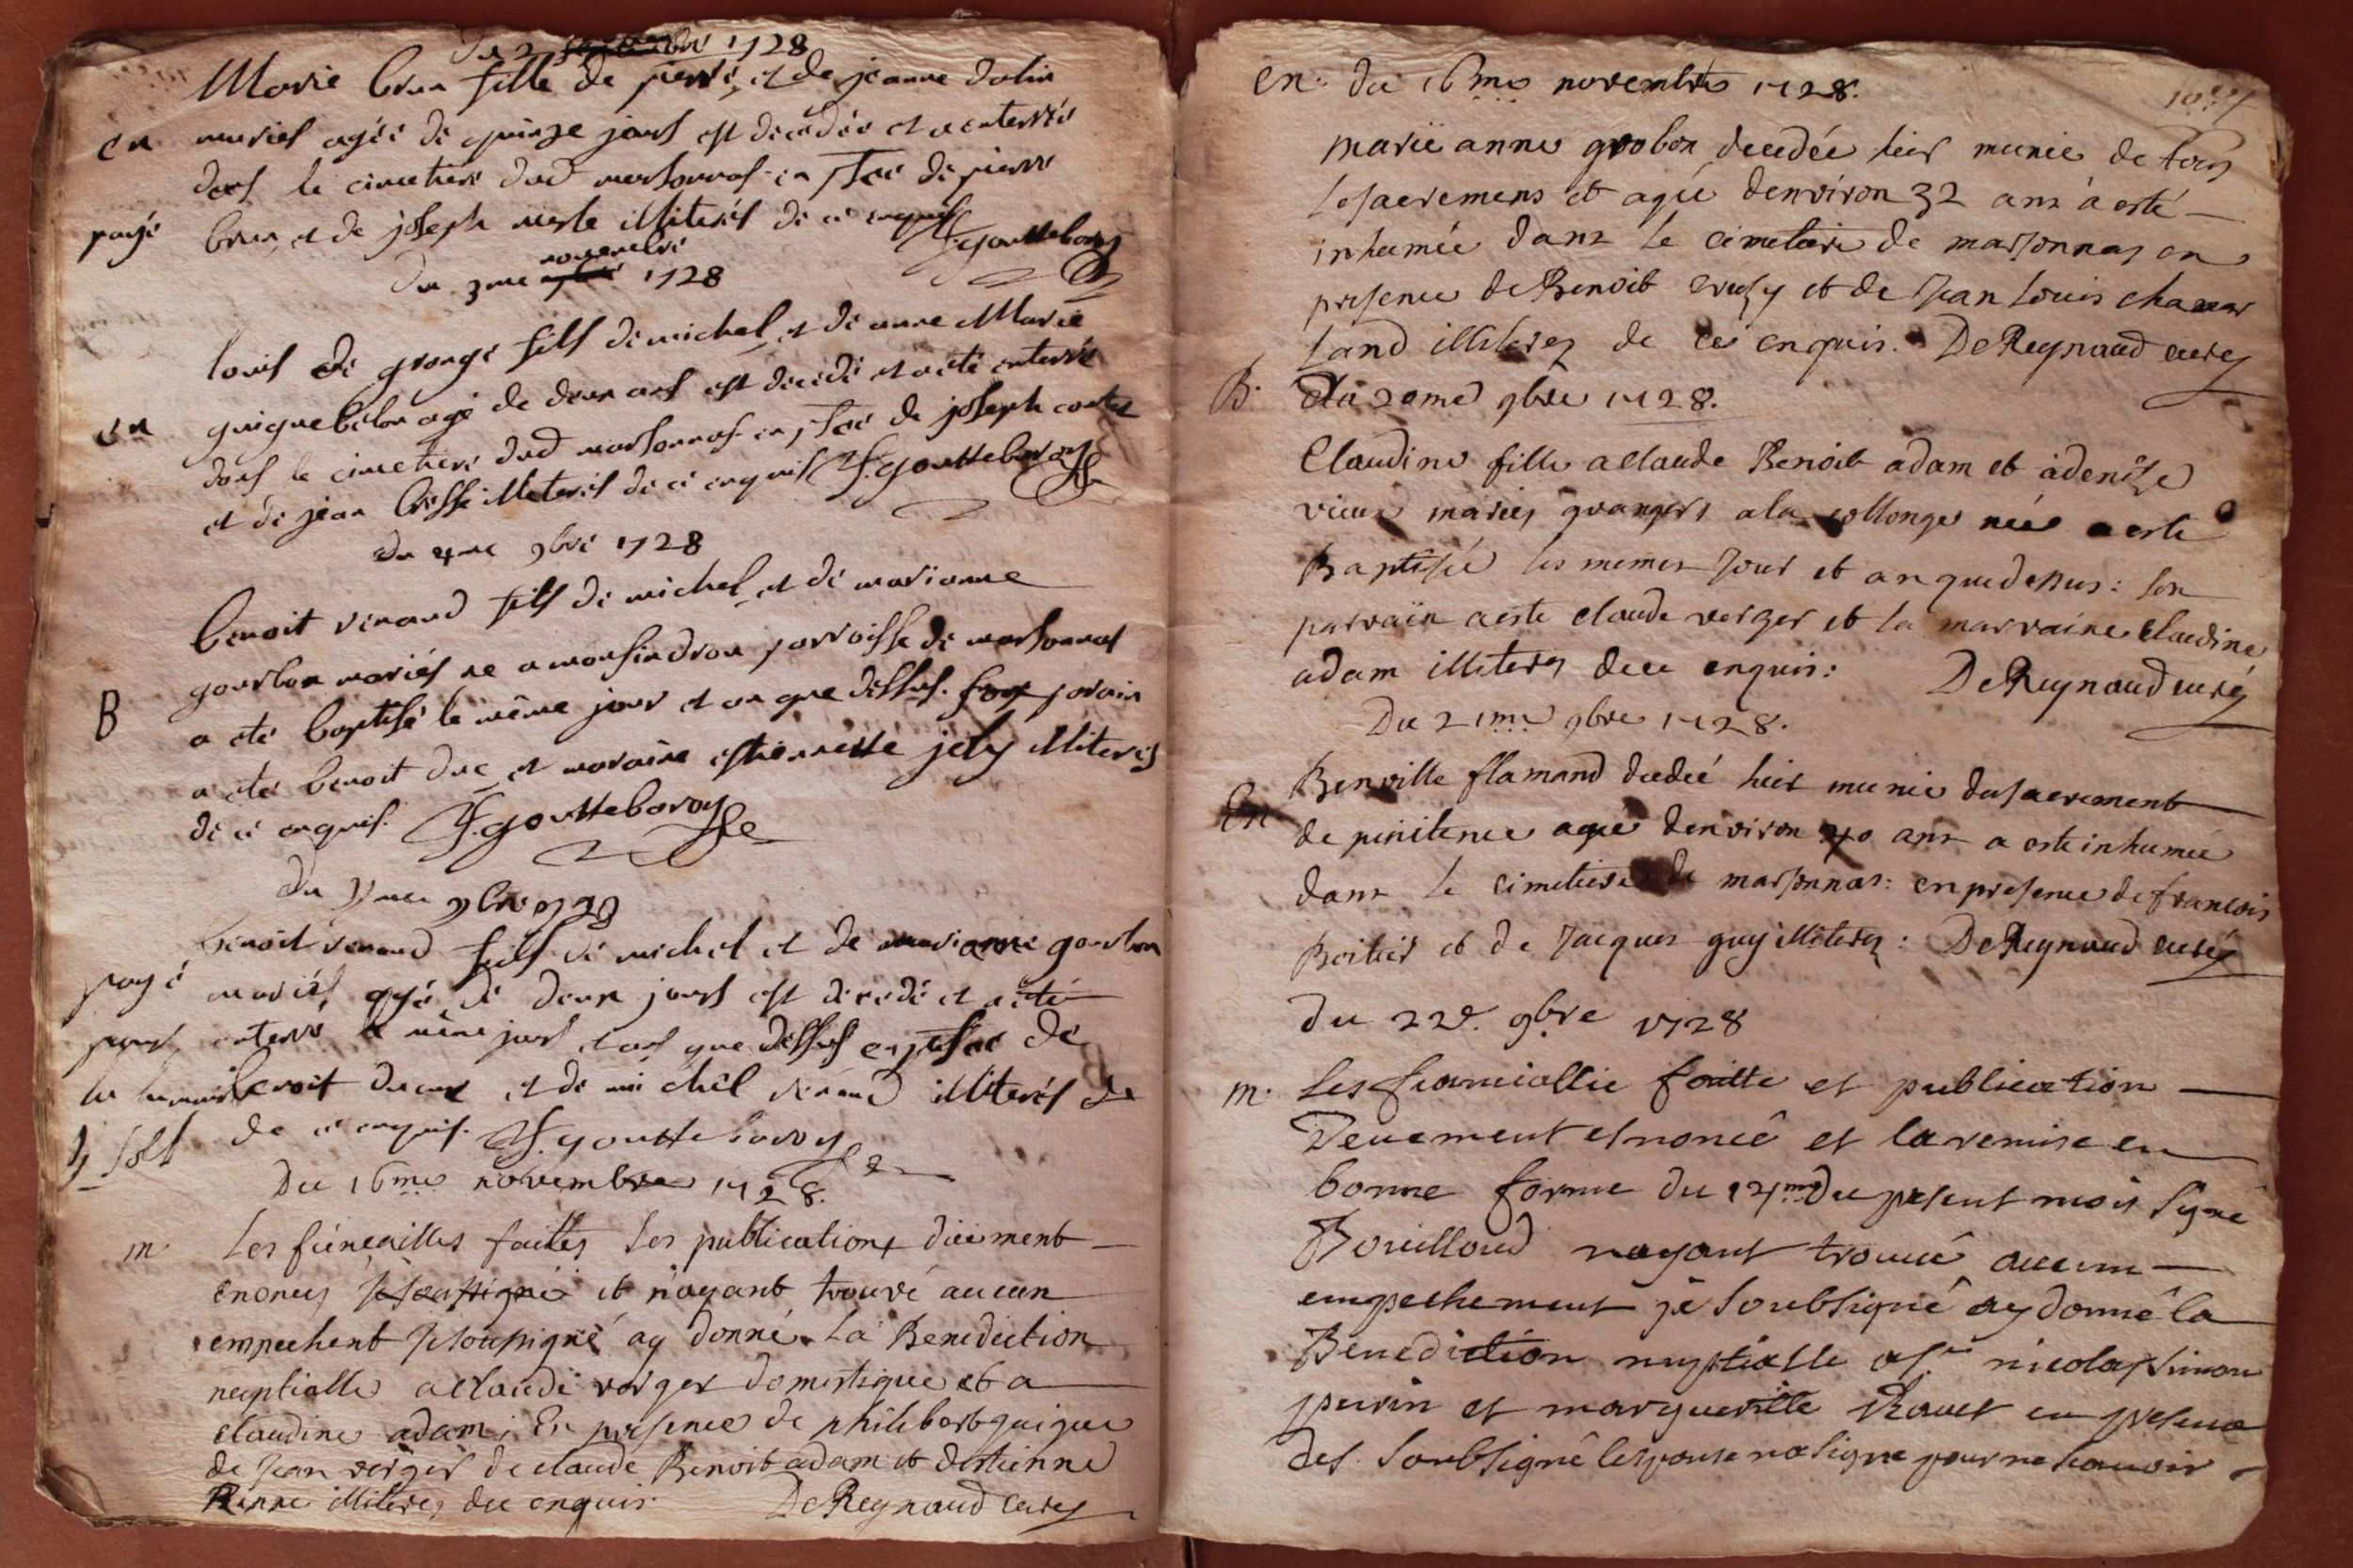 Du 2 1728
Marie brun fille de pierre, et de jeanne dolin
en mariés agée de quinze jours est decedée et a enterrée
dans le cimetiere dud marsonnas en pnce de pierre
payé brun, et de joseph illiterés de ce enquis
J. gouttebaroz
Du 3me novembre 1728
louis de grange fils de michel, et de anne Marie
en guiguebelon agé de deux ans est decedé et a eté enterré
dans le cimetiere dud marsonnas en pnce de joseph
et de jean illiterés de ce enquis J. gouttebaroz
du 4me 9bre 1728
benoit venand fils de michel, et de marianne
gourlon mariés ne a monsindrou parroisse de marsonnas
B a eté baptisé le même jour et an que dessus. parain
a eté benoit duc, et maraine estiennette jely illiterés
de ce enquis. J. gouttebaroz
Du 9bre 1728
benoit venand fils de michel et de marianne gourlon
payé mariés, agé de deux jours est decedé et a eté
pour enterré le même jour et an que dessus en pnce de
benoit ducat et de michel venand illiterés de
sols de ce enquis. J. gouttebaroz
Du 16me novembre 1728.
m. Les fiencailles faittes les publications düement
enoncés et n'ayant trouvé aucun
empechent Je soussigné ay donné La Benediction
nuptialle a claude verger domestique et a
claudine adam; En presence de philibert guigue
de Jean verger de claude Benoit adam et destienne
illiterez de ce enquis. DeReynaud curez
en. du 16me novembre 1728.
marie anne grobon decedée hier munie de tous
les sacremens et agée denviron 32 ans a esté
inhumée dans le cimetiere de marsonnas en
presence de Benoit cruzy et de Jean Louis chanar
land illiterez de ce enquis. DeReynaud curez
B. du 20me 9bre 1728.
Claudine fille a claude Benoit adam et a denise
vieux mariez grangers a la collonge née a esté
Baptisée les memes Jour et an que dessus: son
parrain a esté claude verger et la marraine claudine
adam illiterez de ce enquis: DeReynaud curéz
Du 21me 9bre 1728.
En. Benoitte flamand decedeé hier munie du sacrement
de penitence agée denviron 40 ans a esté inhumée
dans le cimetiere de marsonnas: en presence de francois
Boitier et de Jacques guy illiterez: DeReynaud curéz
du 22e. 9bre 1728
m. Les fianciallie faitte et publication
Deuement et noncé et la remise en
bonne forme du me du present mois signé
Bouilloud nayant trouué aucun
empechement je soubsigné ay donné la
Benediction nuptialle a sr nicolas simon
perrin et margueritte Rauet en presence
des soubsigné lespouse na signé pour ne scauoir